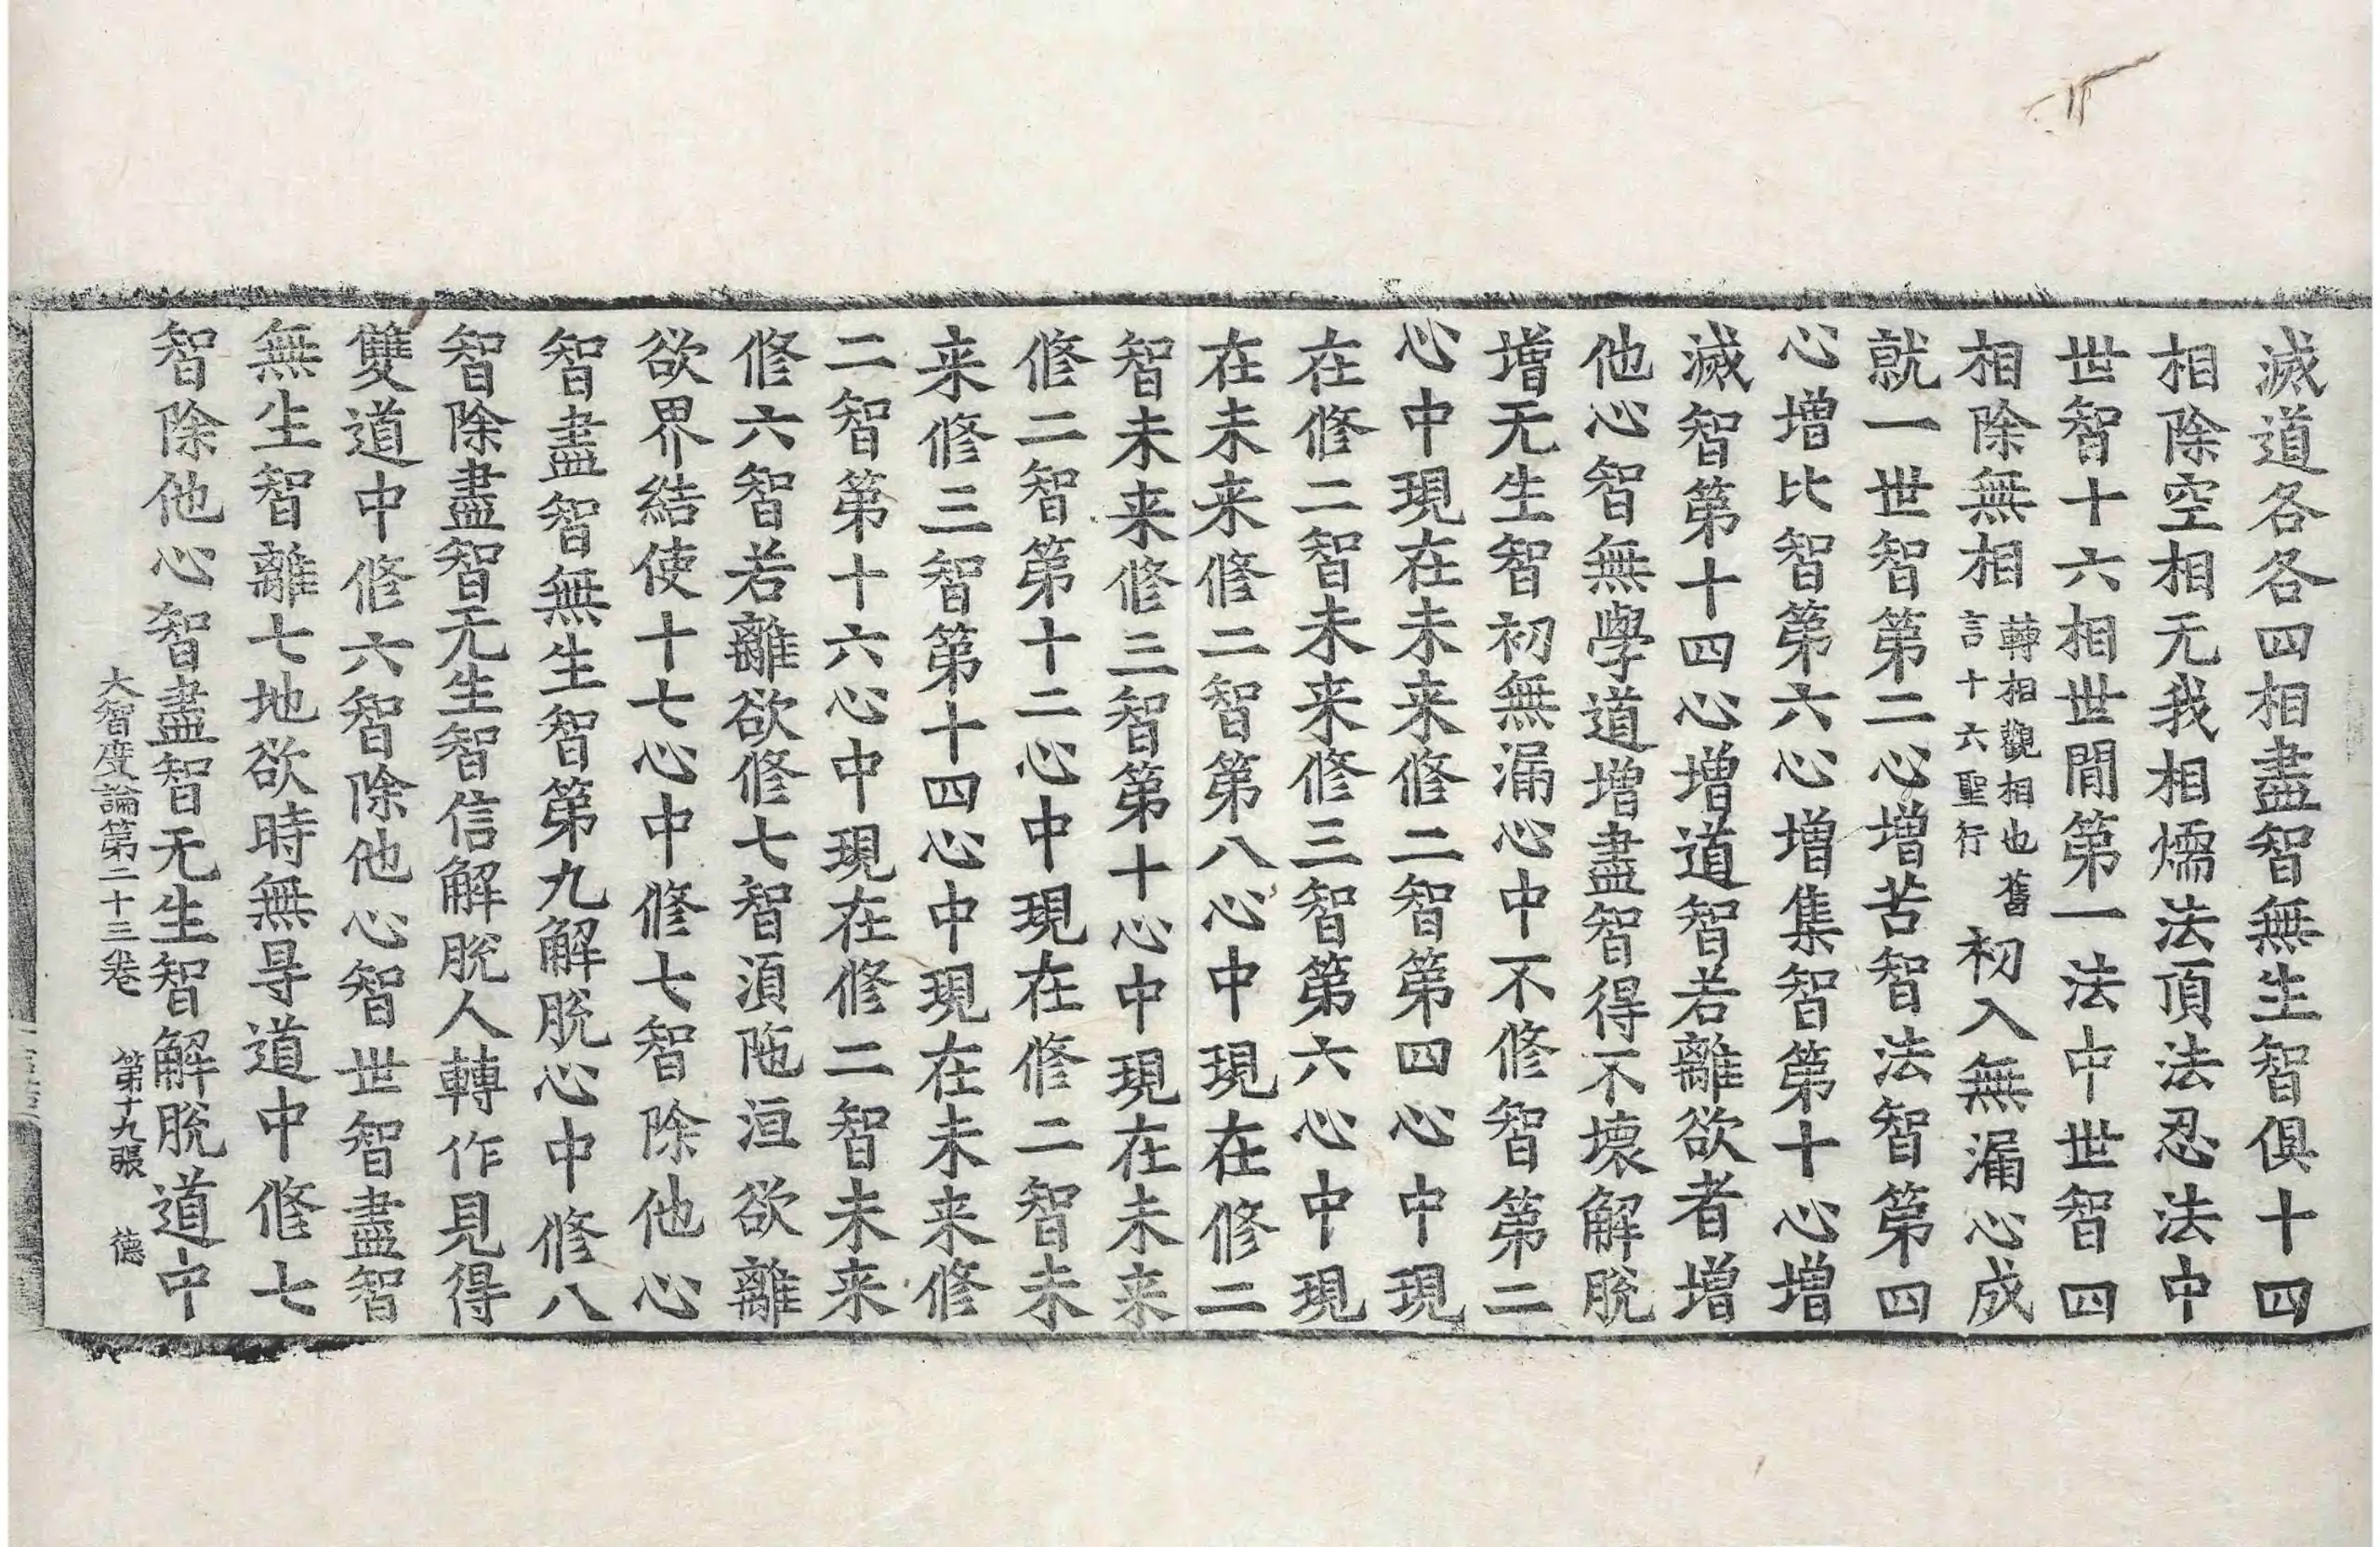 滅道各各四相盡智無生智俱十四
相除空相无我相燸法頂法忍法中
世智十六相世閒第一法中世智四
相除無相轉相觀相也舊言十六聖行初入無漏心成
就一世智第二心增苦智法智第四
心增比智第六心增集智第十心增
滅智第十四心增道智若離欲者增
他心智無學道增盡智得不壞解脫
增无生智初無漏心中不修智第二
心中現在未来修二智第四心中現
在修二智未来修三智第六心中現
在未来修二智第八心中現在修二
智未来修三智第十心中現在未来
修二智第十二心中現在修二智未
来修三智第十四心中現在未来修
二智第十六心中現在修二智未来
修六智若離欲修七智湏陁洹欲離
欲界結使十七心中修七智除他心
智盡智無生智第九解脫心中修八
智除盡智无生智信解脫人轉作見得
雙道中修六智除他心智世智盡智
無生智離七地欲時無㝵道中修七
智除他心智盡智无生智解脫道中
大智度論第二十三卷 第十九張 德